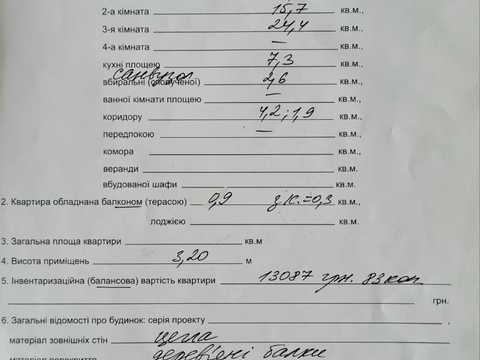 2-а кімната 15,7 кв.м.,
3-я кімната 24,4 кв.м.,
4-а кімната — кв.м.,
кухні площею 7,3 кв.м.,
санвузол
вбиральні (сполученої) 2,6 кв.м.,
ванної кімнати площею — кв.м.,
коридору 4,2; 1,9 кв.м.,
передпокою — кв.м.,
комора кв.м.,
веранди кв.м.,
вбудованої шафи кв.м.
2. Квартира обладнана балконом (терасою) 0,9 з к.=0,3 кв.м.,
лоджією кв.м.,
3. Загальна площа квартири кв.м
4. Висота приміщень 3,20 м
5. Інвентаризаційна (балансова) вартість квартири 13087 грн. 83 коп.
грн.
6. Загальні відомості про будинок: серія проекту
матеріал зовнішніх стін цегла
матеріал перекриття дерев'яні балки